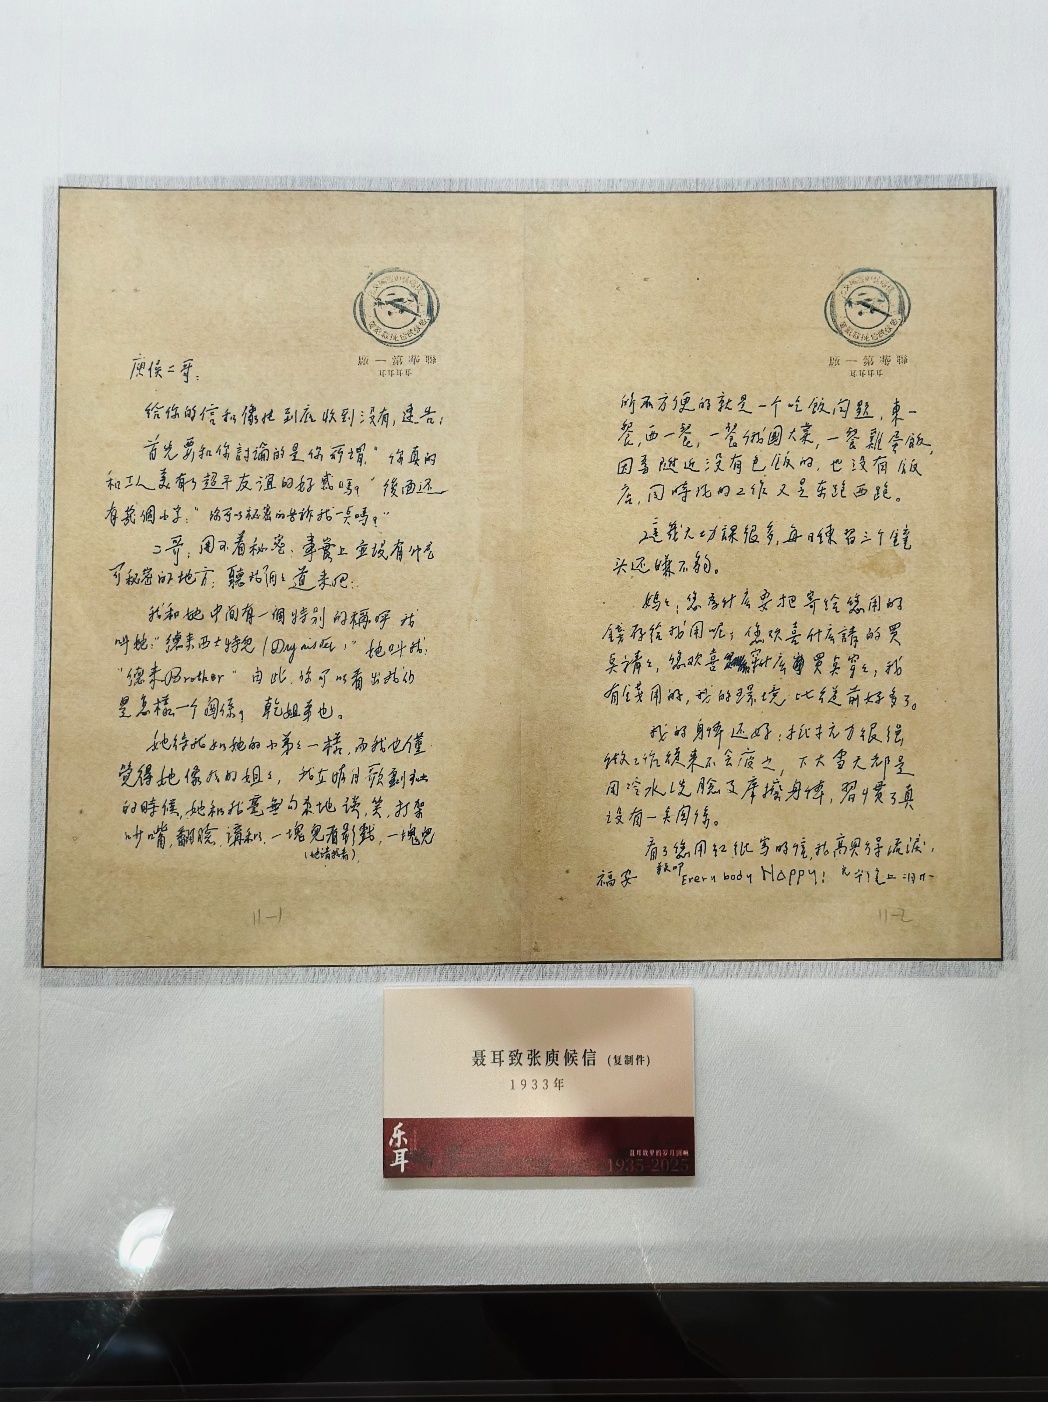 庚侯二哥：
給你的信和像片到底收到沒有，速告；
首先要和你討論的是你所謂“你真的
和工人美有了超乎友誼的好感嗎？”後面还
有幾個小字：“你可以秘密的告訴我一点嗎？”
二哥，用不着秘密，事實上並沒有什么
可秘密的地方，聽我細細道来吧：
我和她中間有一個特別的稱呼 我
叫她：“德来西士特兒(Dry sister)，”她叫我：
“德来Brother”由此，你可以看出我们
是怎樣一个関係，乾姐弟也。
她待我如她的小弟弟一樣，而我也僅
覺得她像我的姐姐，我在明月歌劇社
的時候，她和我毫無拘束地談，笑，打架
吵嘴，翻臉，講和，一塊兒看影戲，一塊兒
(她請我看)，
11-1
所不方便的就是一个吃飯问題，東一
餐，西一餐，一餐俄國大菜，一餐雞蛋飯，
因為附近沒有包飯的，也沒有飯
店，同時我的工作又是东跑西跑。
這幾天功課很多，每日練習三个鐘
头还嫌不夠。
媽媽：您為什么要把寄给您用的
錢存给我用呢？您欢喜什么請的買
点請請，您欢喜穿什么買点穿穿，我
有錢用的，我的環境比從前好多了。
我的身体还好，抵抗力很强
做工作後来不会疲乏，下大雪天都是
用冷水洗臉及摩擦身体，習慣了真
沒有一点関係。
看了您用红纸寫的信，我高興得流淚，
敬叩
福安 Everybody Happy!
11-2
聂耳致张庾候信（复制件）
1933年
乐耳
1935-2025